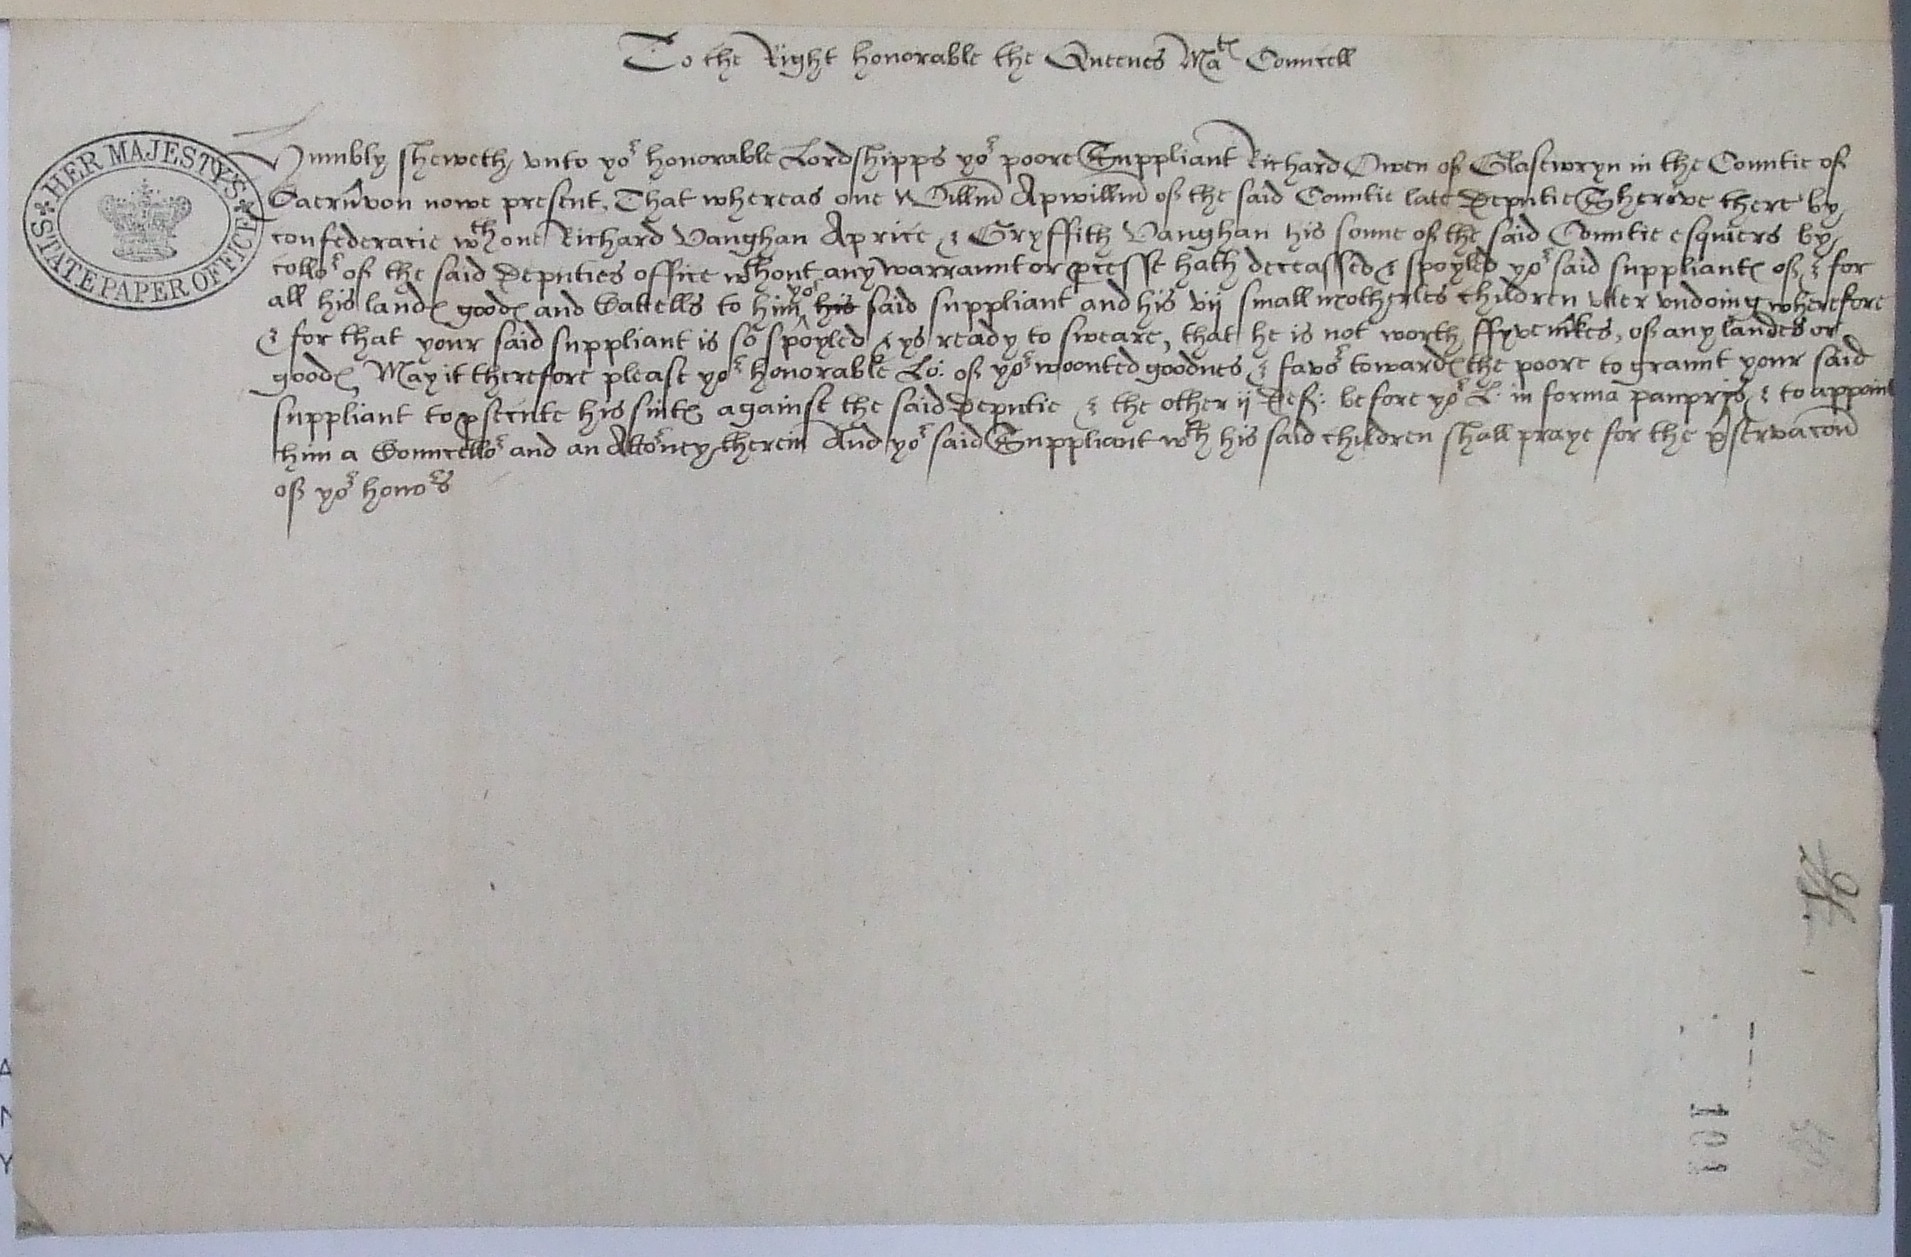 To the Right honorable the Queenes Matꝭ Councell
HER MAJESTY'S STATE PAPER OFFICE
Humbly sheweth vnto yor honorable Lordshipps yor poore Suppliant Richard Owen of Glascwryn in the Countie of
Caernvon nowe present, That whereas one Willm Apwillm of the said Countie late Deputie Shereve there by
confederacie wth one Richard Vaughan Aprice & Gryffith Vaughan his sonne of the said Countie esquiers by
collor of the said Deputies office wthout any warrannt or pcesse hath deceassed & spoyled yor said suppliantꝭ of, & for
all his landꝭ goodꝭ and Cattells to him yor his said suppliant and his vij small motherles children vtter vndoing wherefore
& for that your said suppliant is so spoyled & ys ready to sweare, that he is not worth ffyve mkes, of any landes or
goodꝭ May it therefore please yor honorable Lo: of yor woonted goodnes & favor towardꝭ the poore to graunt your said
suppliant to psecute his suitꝭ against the said Deputie & the other ij Def: before yor L: in forma paupris, & to appoint
him a Councellor and an Attorney therein And yor said Suppliant wth his said children shall praye for the pservacon
of yor honors
103